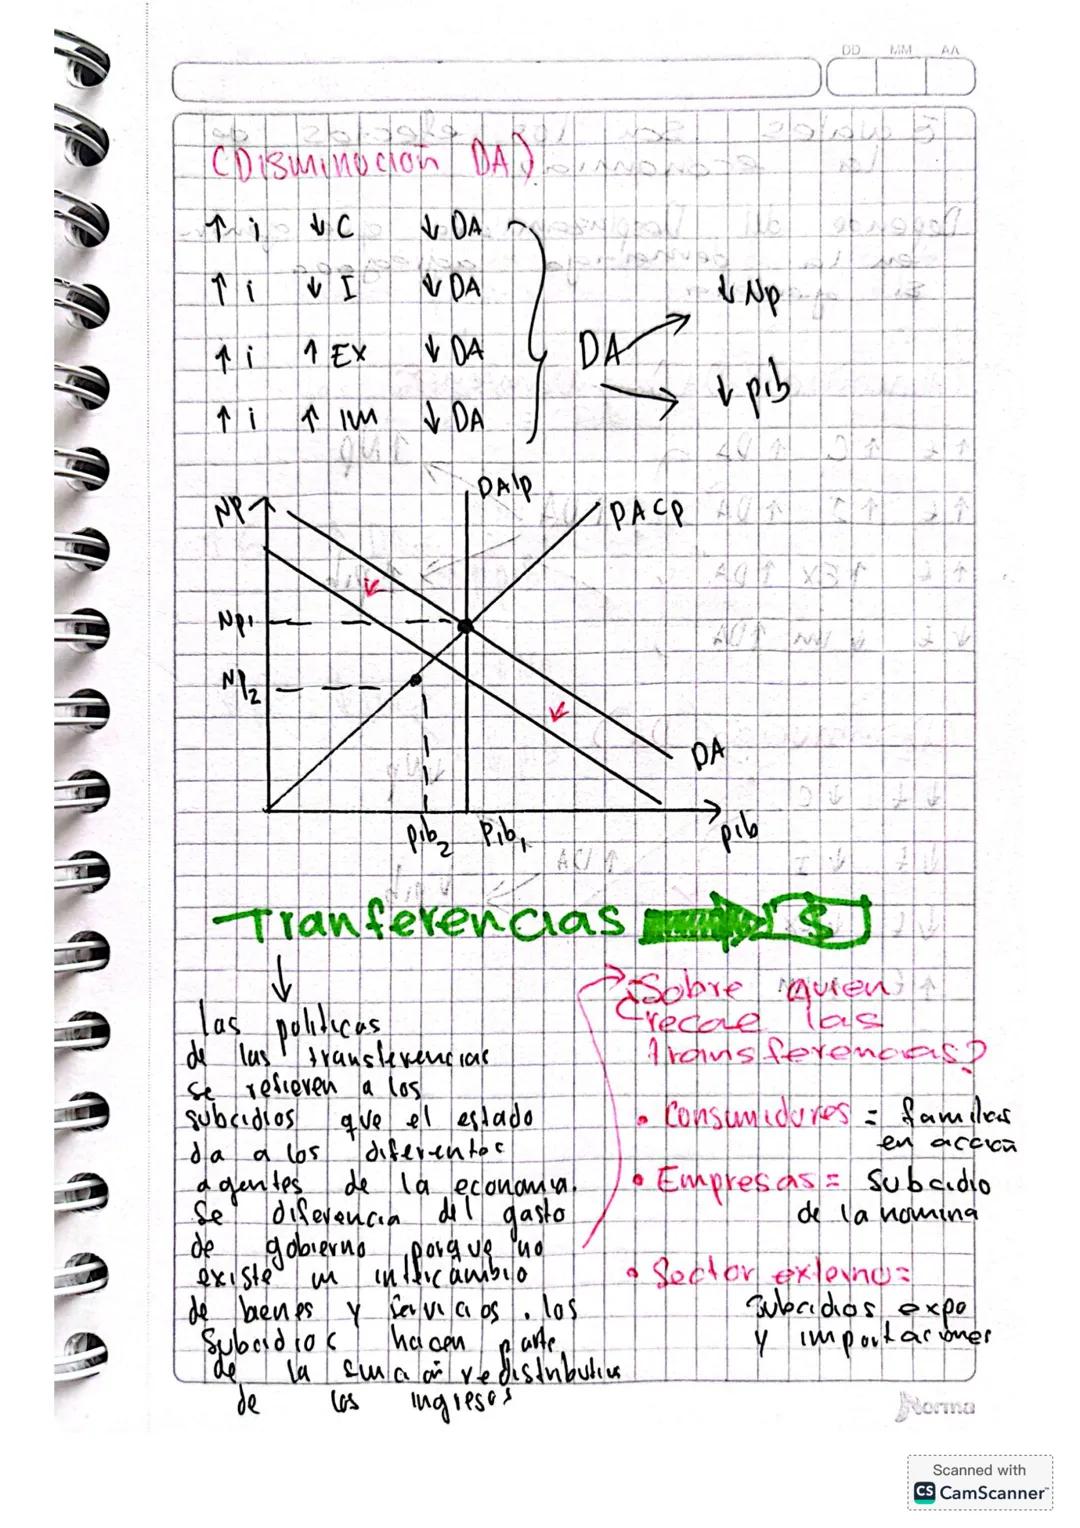 DD MM AA
(Disminucion DA)
↑ i ↓ C ↓ DA
↑ i ↓ I ↓ DA
↑ i ↑ EX ↓ DA
↑ i ↑ IM ↓ DA
DA
↓ Np
↓ pib
NP
DAlp
DACP
Np1
Np2
DA
pib2 Pib1 pib
Tranferencias $
las politicas
de las transferencias
se refieren a los
subcidios que el estado
da a los diferentes
agentes de la economia.
Se diferencia del gasto
de gobierno porque no
existe un intercambio
de bienes y servicios. los
Subcidios hacen parte
de la redistributiva
de los ingresos
¿Sobre quien
recae las
transferencias?
• Consumidores = familias
en accion
• Empresas = Subcidio
de la nomina
• Sector externo =
Subcidios expo
y importaciones
Norma
Scanned with
CS CamScanner